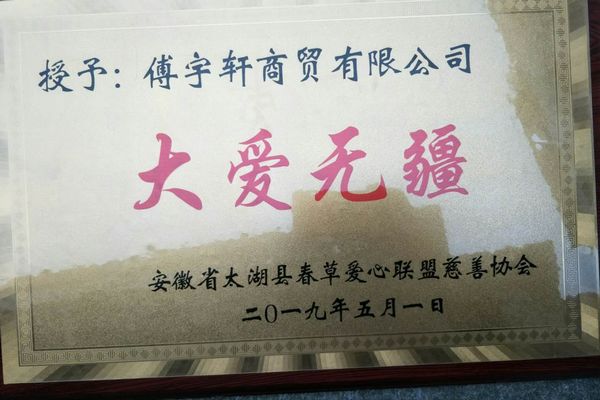 授予：傅宇轩商贸有限公司
大爱无疆
安徽省太湖县春草爱心联盟慈善协会
二〇一九年五月一日